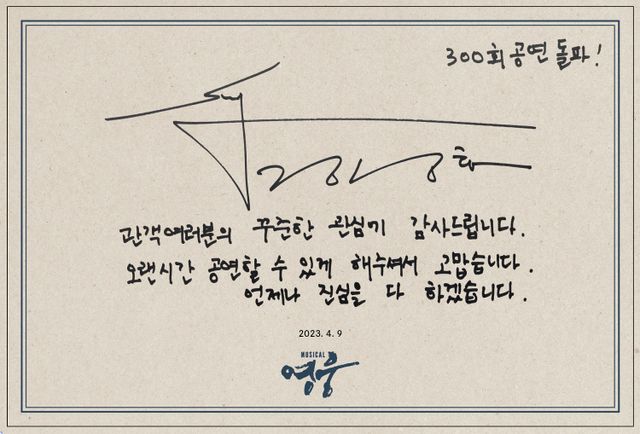 300회 공연 돌파!
관객여러분의 꾸준한 관심기 감사드립니다.
오랜시간 공연할 수 있게 해주셔서 고맙습니다.
언제나 진심을 다 하겠습니다.
2023. 4. 9
MUSICAL
영웅